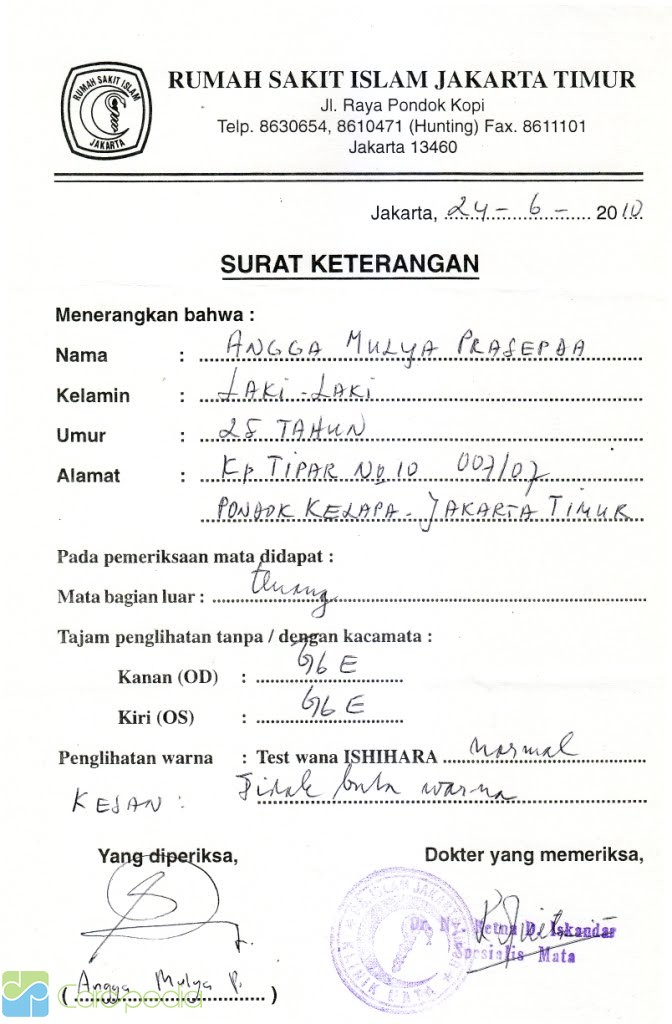 RUMAH SAKIT ISLAM
JAKARTA
RUMAH SAKIT ISLAM JAKARTA TIMUR
Jl. Raya Pondok Kopi
Telp. 8630654, 8610471 (Hunting) Fax. 8611101
Jakarta 13460
Jakarta, 24 - 6 - 2010
SURAT KETERANGAN
Menerangkan bahwa :
Nama : ANGGA MULYA PRASEPDA
Kelamin : LAKI-LAKI
Umur : 25 TAHUN
Alamat : Kp TIPAR No 10 007/07
PONDOK KELAPA - JAKARTA TIMUR
Pada pemeriksaan mata didapat :
Mata bagian luar : tenang
Tajam penglihatan tanpa / dengan kacamata :
Kanan (OD) : 6/6 E
Kiri (OS) : 6/6 E
Penglihatan warna : Test wana ISHIHARA normal
KESAN : Tidak buta warna
Yang diperiksa, Dokter yang memeriksa,
Dr. Ny. Retna D. Iskandar
Spesialis Mata
(Angga Mulya P.)
Cardpedia